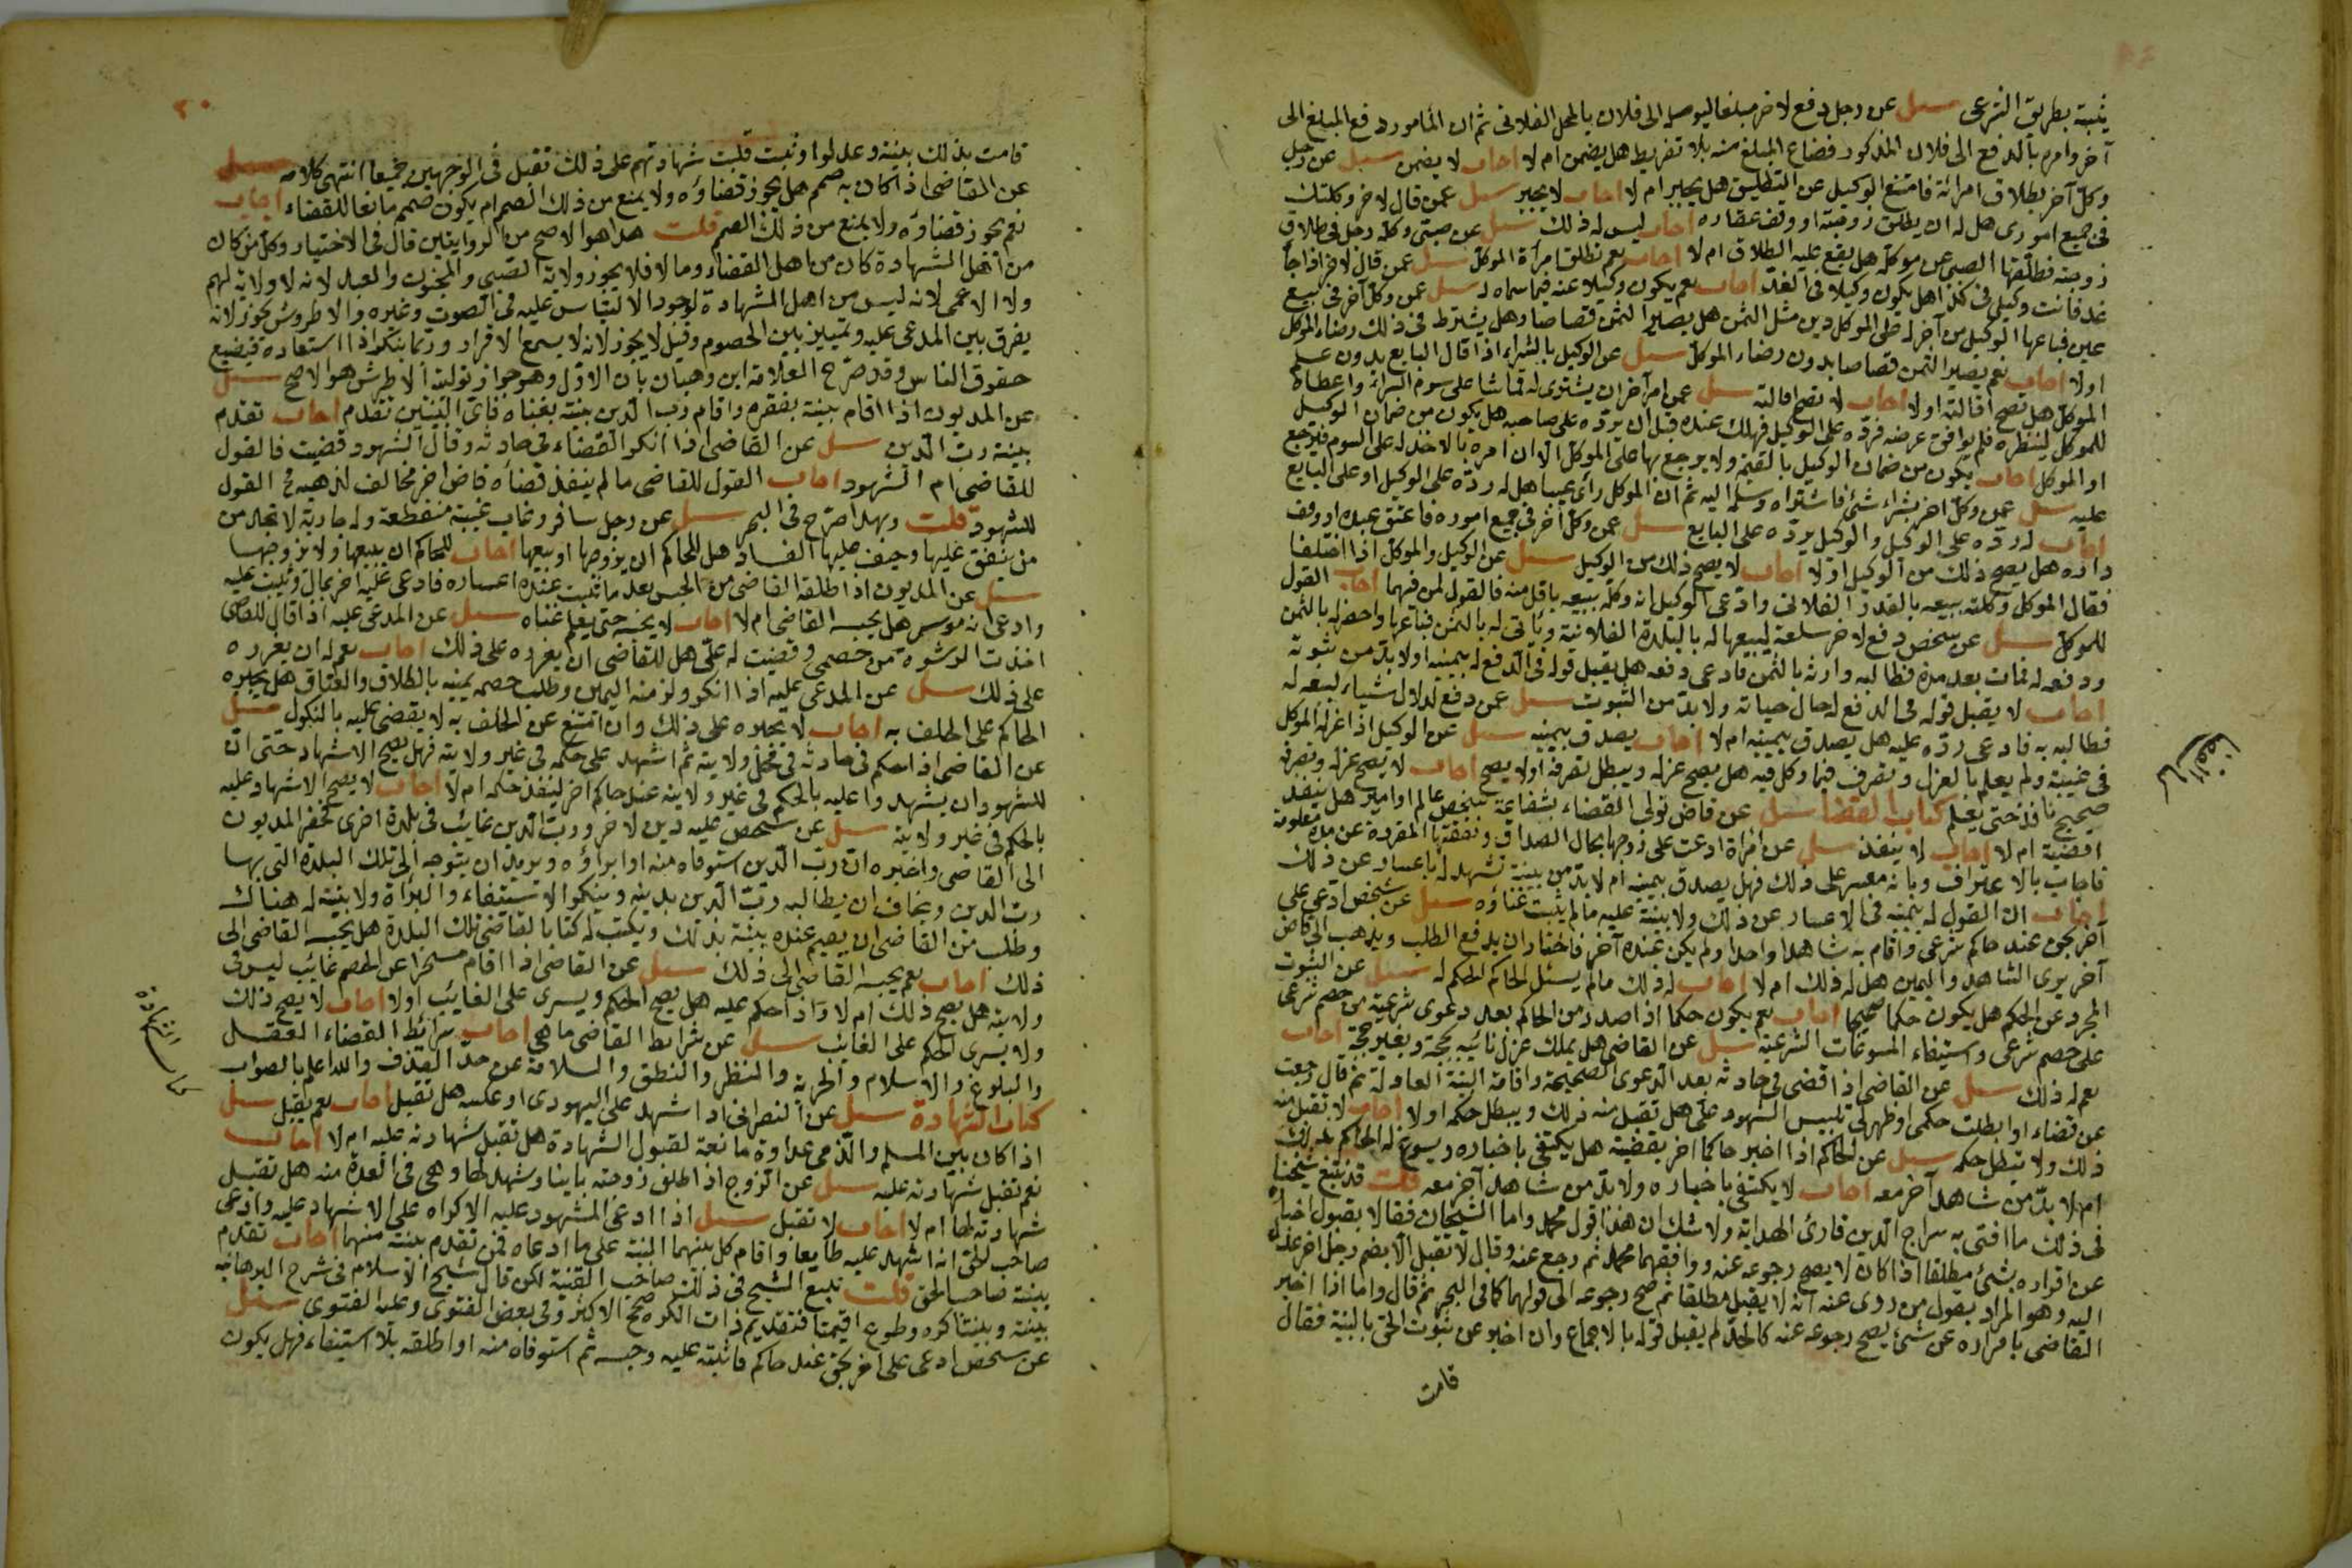 يثبته بطريق الشرعى سئل عن رجل دفع لاخر مبلغا ليوصله الى فلان بالمحل الفلانى ثم ان المأمور دفع المبلغ الى
آخر وامره بالدفع الى فلان المذكور فضاع المبلغ منه بلا تفريط هل يضمن ام لا اجاب لا يضمن سئل عن رجل
وكل آخر بطلاق امرأته فامتنع الوكيل عن التطليق هل يجبر ام لا اجاب لا يجبر سئل عمن قال لاخر وكلتك
فى جميع امورى هل له ان يطلق زوجته او وقف عقاره اجاب ليس له ذلك سئل عن صبى وكله رجل فى طلاق
زوجته فطلقها الصبى عن موكله هل يقع عليه الطلاق ام لا اجاب نعم تطلق امرأة الموكل سئل عمن قال لاخر اذا جآ
غد فانت وكيلى فى كذا هل يكون وكيلا فى الغد اجاب نعم يكون وكيلا عنه فيما سماه له سئل عمن وكل آخر فى بيع
عين فباعها الوكيل من آخر له على الموكل دين مثل الثمن هل يصير الثمن قصاصا وهل يشترط فى ذلك رضاء الموكل
اولا اجاب نعم يصير الثمن قصاصا بدون رضاء الموكل سئل عن الوكيل بالشراء اذا اقال البايع بدون علم
الموكل هل تصح اقالته اولا اجاب لا تصح اقالته سئل عمن امر آخر ان يشترى له قماشا على سوم الشراء واعطاه
للموكل لينظره فلم يوافق غرضه فرده على الوكيل فهلك عنده قبل ان يرده على صاحبه هل يكون من ضمان الوكيل
او الموكل اجاب يكون من ضمان الوكيل بالقيمة ولا يرجع بها على الموكل الا ان امره بالاخذ له على السوم فيرجع
عليه سئل عمن وكل اخر بشراء شئ فاشتراه وسلمه اليه ثم ان الموكل رأى عيبا هل له رده على الوكيل او على البايع
اجاب له رده على الوكيل والوكيل يرده على البايع سئل عمن وكل آخر فى جميع اموره فاعتق عبده او وقف
داره هل يصح ذلك من الوكيل اولا اجاب لا يصح ذلك من الوكيل سئل عن الوكيل والموكل اذا اختلفا
فقال الموكل وكلته ببيعه بالقدر الفلانى وادعى الوكيل انه وكله ببيعه باقل منه فالقول لمن فيهما اجاب القول
للموكل سئل عن شخص دفع لاخر سلعة ليبيعها له بالبلدة الفلانية ويأتى له بالثمن فباعها واحضر له بالثمن
ودفعه له فمات بعد مدة فطالبه وارثه بالثمن فادعى دفعه هل يقبل قوله فى الدفع له بيمينه اولا بد من ثبوته
اجاب لا يقبل قوله فى الدفع له حال حياته ولا بد من الثبوت سئل عمن دفع لدلال شياء ليبيعه له
فطالبه به فادعى رده عليه هل يصدق بيمينه ام لا اجاب يصدق بيمينه سئل عن الوكيل اذا عزله الموكل
فى غيبته ولم يعلم بالعزل وتصرف فيما وكل فيه هل يصح عزله ويبطل تصرفه اولا يصح اجاب لا يصح عزله وتصرفه
صحيح نافذ حتى يعلم كتاب القضا سئل عن قاض تولى القضاء بشفاعة شخص عالم او امير هل ينفذ
اقضيته ام لا اجاب لا ينفذ سئل عن امرأة ادعت على زوجها بحال الصداق ونفقتها المقررة عن مدة معلومة
فاجاب بالاعتراف وبانه معسر على ذلك فهل يصدق بيمينه ام لا بد من بينة تشهد له باعساره عن ذلك
اجاب ان القول له بيمينه فى الاعسار عن ذلك ولا بينة عليه ما لم يثبت غناؤه سئل عن شخص ادعى على
آخر بحق عند حاكم شرعى واقام به شاهدا واحدا ولم يكن عنده آخر فاختار ان يدفع الطلب ويذهب الى قاض
آخر يرى الشاهد واليمين هل له ذلك ام لا اجاب له ذلك ما لم يسئل الحاكم الحكم له سئل عن الثبوت
المجرد عن الحكم هل يكون حكما صحيحا اجاب نعم يكون حكما اذا صدر من الحاكم بعد دعوى شرعية من خصم شرعى
على خصم شرعى واستيفاء المسوغات الشرعية سئل عن القاضى هل يملك عزل نائبه بجحة وبغير جحة اجاب
نعم له ذلك سئل عن القاضى اذا قضى فى حادثة بعد الدعوى الصحيحة واقامة البينة العادلة ثم قال رجعت
عن قضاء او ابطلت حكمى او ظهر لى تلبيس الشهود على هل تقبل منه ذلك ويبطل حكمه اولا اجاب لا تقبل منه
ذلك ولا يبطل حكمه سئل عن الحاكم اذا اخبر حاكما اخر بقضيته هل يكتفى باخباره ويسوغ له الحاكم بذلك
ام لا بد من شاهد آخر معه اجاب لا يكتفى باخباره ولا بد من شاهد آخر معه قلت قد تبع شيخنا
فى ذلك ما افتى به سراج الدين قارئ الهداية ولا شك ان هذا قول محمد واما الشيخان فقالا بقبول اخباره
عن اقراره بشئ مطلقا اذا كان لا يصح رجوعه عنه ووافقهما محمد ثم رجع عنه وقال لا تقبل الا بضم رجل اخر عدل
اليه وهو المراد بقول من روى عنه انه لا يقبل مطلقا ثم صح رجوعه الى قولهما كما فى البحر ثم قال واما اذا اخبر
القاضى باقراره عن شئ يصح رجوعه عنه كالحد لم يقبل قوله بالاجماع وان اخبر عن ثبوت الحق بالبينة فقال
قامت
كتاب القضا
٢٠
قامت بذلك بينة وعدلوا وثبت قلبت شهادتهم على ذلك تقبل فى الوجهين جميعا انتهى كلامه سئل
عن القاضى اذا كان به صمم هل يجوز قضاؤه ولا يمنع من ذلك الصمم ام يكون صمم مانعا للقضاء اجاب
نعم يجوز قضاؤه ولا يمنع من ذلك الصمم قلت هذا هو الاصح من الروايتين قال فى الاختيار وكل من كان
من اهل الشهادة كان من اهل القضاء وما لا فلا يجوز ولاية الصبى والمجنون والعبد لانه لا ولاية لهم
ولا الاعمى لانه ليس من اهل الشهادة لوجود الالتباس عليه فى الصوت وغيره والاطروش يجوز لانه
يفرق بين المدعى عليه وتمييز بين الخصوم وقيل لا يجوز لانه لا يسمع الاقرار وربما ينكر اذا استعاده فيضيع
حقوق الناس وقد صرح العلامة ابن وهبان بان الاول وهو جواز تولية الاطرش هو الاصح سئل
عن المديون اذا اقام بينة بفقره واقام رب الدين بينة بغناه فاى البينتين تقدم اجاب تقدم
بينة رب الدين سئل عن القاضى اذا انكر القضاء فى حادثة وقال الشهود قضيت فالقول
للقاضى ام الشهود اجاب القول للقاضى ما لم ينفذ قضاه قاض اخر مخالف لمذهبه فح القول
للشهود قلت وبهذا صرح فى البحر سئل عن رجل سافر وغاب غيبة منقطعة وله جارية لا تجد من
من ينفق عليها وخيف عليها الفساد هل للحاكم ان يزوجها او يبيعها اجاب للحاكم ان يبيعها ولا يزوجها
سئل عن المديون اذا اطلقه القاضى من الحبس بعد ما ثبت عنده اعساره فادعى عليه اخر بمال وثبت عليه
وادعى انه موسر هل يحبسه القاضى ام لا اجاب لا يحبسه حتى يعلم غناه سئل عن المدعى عليه اذا قال للقاضى
اخذت الرشوة من خصمى وقضيت له على هل للقاضى ان يعزره على ذلك اجاب نعم له ان يعزره
على ذلك سئل عن المدعى عليه اذا انكر ولزمه اليمين وطلب خصمه يمينه بالطلاق والعتاق هل يجبره
الحاكم على الحلف به اجاب لا يجبره على ذلك وان امتنع عن الحلف به لا يقضى عليه بالنكول سئل
عن القاضى اذا حكم فى حادثة فى محل ولايته ثم اشهد على حكمه فى غير ولايته فهل يصح الاشهاد حتى ان
للشهود ان يشهدوا عليه بالحكم فى غير ولايته عند حاكم اخر لينفذ حكمه ام لا اجاب لا يصح الاشهاد عليه
بالحكم فى غير ولايته سئل عن شخص عليه دين لاخر ورب الدين غائب فى بلدة اخرى فحضر المديون
الى القاضى واخبره ان رب الدين استوفاه منه او ابراؤه ويريد ان يتوجه الى تلك البلدة التى بها
رب الدين ويخاف ان يطالبه رب الدين بدينه وينكر الاستيفاء والبراة ولا بينة له هناك
وطلب من القاضى ان يقيم عنده بينة بذلك ويكتب له كتابا لقاضى تلك البلدة هل يجيبه القاضى الى
ذلك اجاب نعم يجيبه القاضى الى ذلك سئل عن القاضى اذا اقام مسخرا عن الخصم غائب ليس فى
ولايته هل يصح ذلك ام لا واذا حكم عليه هل يصح الحكم ويسرى على الغايب اولا اجاب لا يصح ذلك
ولا يسرى الحكم على الغايب سئل عن شرائط القاضى ما هى اجاب شرائط القضاء العقل
والبلوغ والاسلام والحرية والنظر والنطق والسلامة عن حد القذف والله اعلم بالصواب
كتاب الشهادة سئل عن النصرانى اذا شهد على اليهودى او عكسه هل تقبل اجاب نعم يقبل سئل
اذا كان بين المسلم والذمى عداوة مانعة لقبول الشهادة هل تقبل شهادته عليه ام لا اجاب
نعم تقبل شهادته عليه سئل عن الزوج اذا طلق زوجته باينا وشهد لها وهى فى العدة منه هل تقبل
شهادته لها ام لا اجاب لا تقبل سئل اذا ادعى المشهود عليه الاكراه على الاشهاد عليه وادعى
صاحب الحق انه اشهد عليه طايعا واقام كل بينهما البينة على ما ادعاه فمن تقدم بينة منهما اجاب تقدم
بينة صاحب الحق قلت تبع الشيخ فى ذلك صاحب القنية لكن قال شيخ الاسلام فى شرح الوهبانيه
بينة وبينتا كره وطوع اقيمتا فتقديم ذات الكره صحح الاكثر وفى بعض الفتوى وعليه الفتوى سئل
عن شخص ادعى على اخر بحق عند حاكم فاثبته عليه وحبسه ثم استوفاه منه او اطلقه بلا استيفاء فهل يكون
كتاب الشهادة